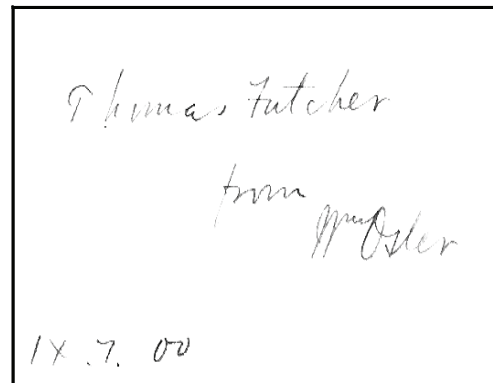 Thomas Futcher
from
Wm Osler
IX.7.00